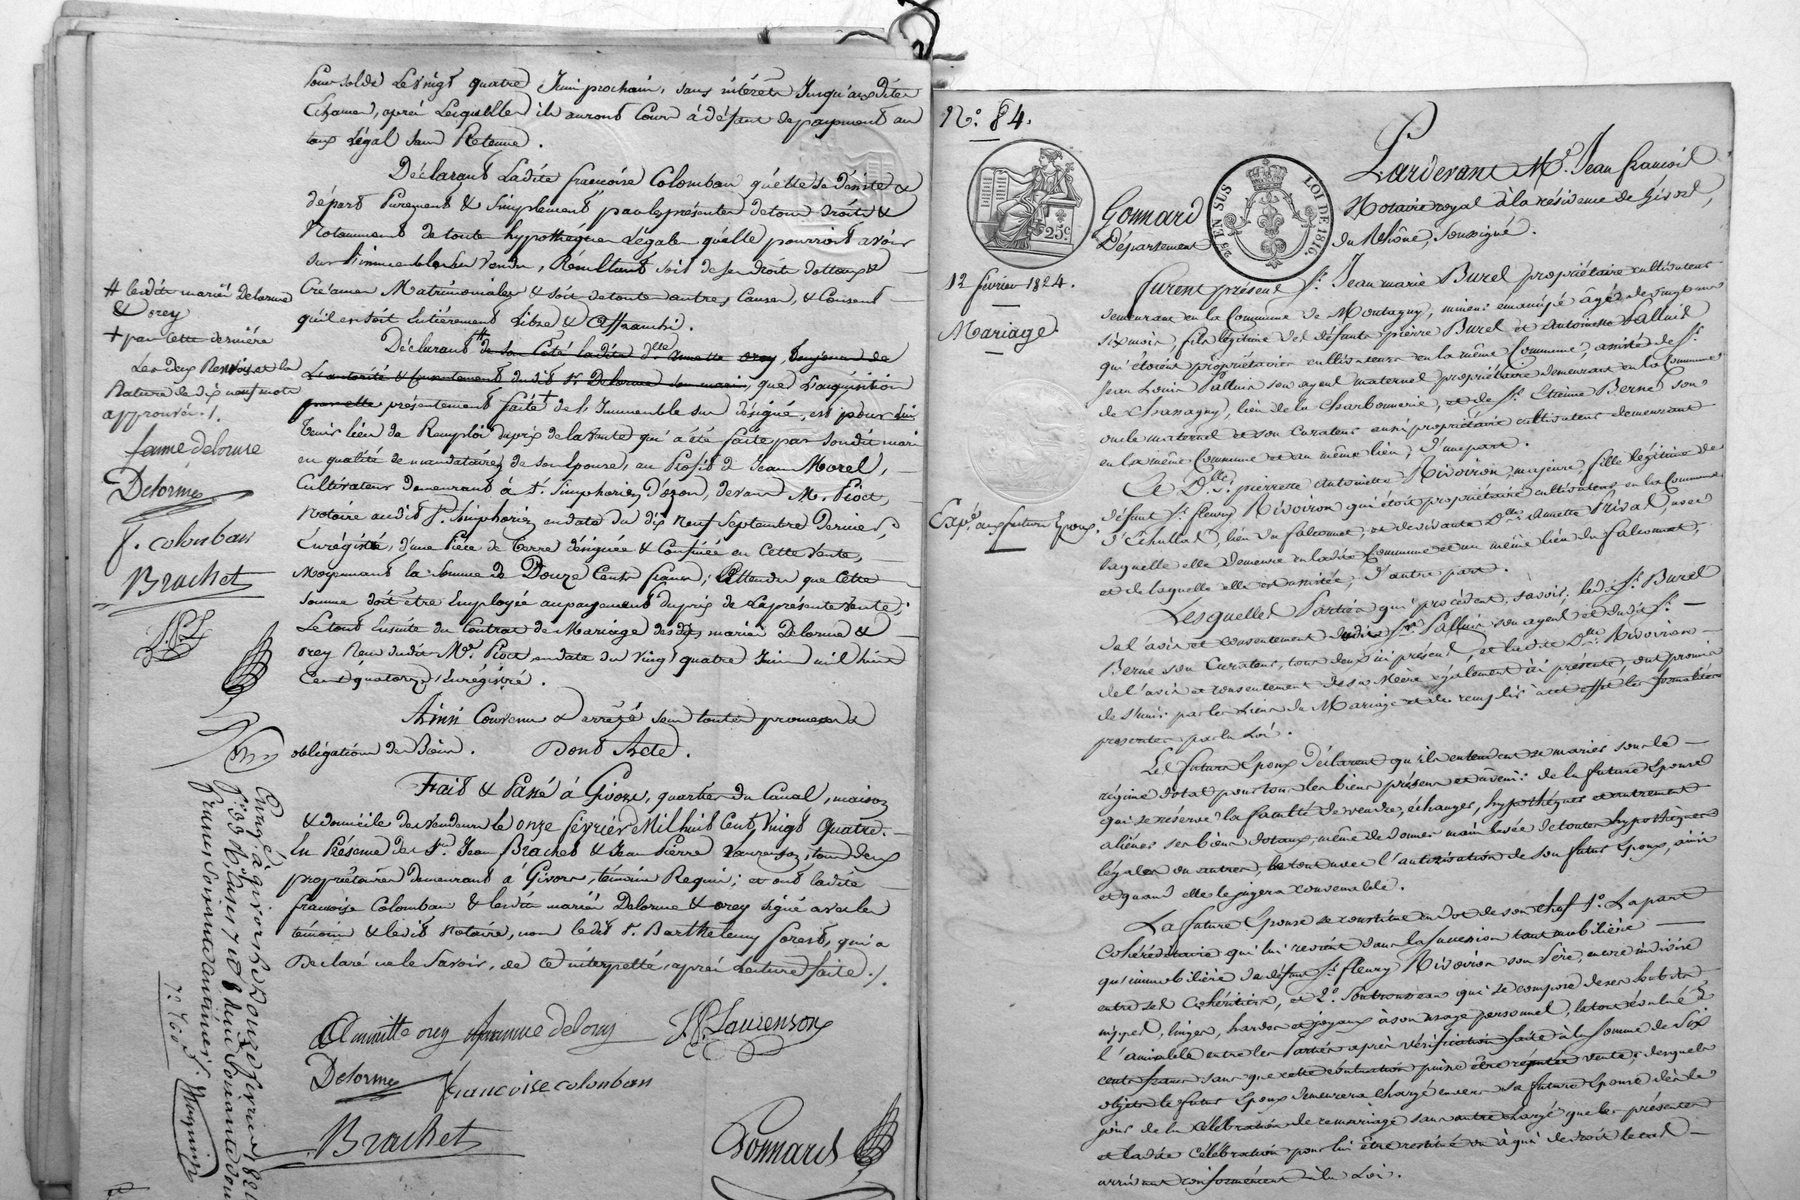 Pour solde le vingt quatre Juin prochain, sans intérêts Jusqu'auxdites
Echéance, après lesquelles ils auront Cours à défaut de payement au
taux Légal sans Retenue.
Déclarant Ladite françoise Colomban qu'elle se désiste &
départ Purement & Simplement par les présentes de tous droits &
Notamment de toute hypothèque Légale qu'elle pourroit avoir
sur l'immeuble Vendu, Résultant soit de ses droits dotaux &
Créances Matrimoniales & soit de toute autres Causes, & Consent
qu'il en soit Entièrement Libre & Affranchi.
Déclarant # de son Coté ladite dlle Annette orey,
L'autorité & Consentement dudit Sr. Delorme son mari, que L'acquisition
présentement faite + de l'Immeuble sur désigné, est pour lui
tenir lieu de Remploi du prix de la vente qui a été faite par Sondit mari
en qualité de mandataire de son Epouse, au Profit de Jean Morel,
Cultivateur demeurant à St. Simphorien d'ozon, devant Me. Pioct,
Notaire audit St. Simphorien en date du dix neuf Septembre dernier,
Enrégistré, d'une Pièce de terre désignée & Confinée en Cette Vente,
Moyennant la Somme de Douze Cents francs; Attendu que Cette
somme doit être Employée au payement du prix de la présente Vente.
Le tout Ensuite du Contrat de Mariage desdits mariés Delorme &
orey Reçu dudit Me. Pioct, en date du vingt quatre Juin mil huit
Cent quatorze, Enrégistré.
Ainsi Convenu & arrêté sous toutes promesses &
obligations de Biens. Dont Acte.
Fait & Passé à Givors, quartier du Canal, maison
& domicile des vendeurs le onze février Mil huit Cent Vingt Quatre.
En Présence des Srs. Jean Brachet & Jean Pierre Laurenson, tous deux
propriétaires demeurant à Givors, témoins Requis; et ont ladite
françoise Colomban & lesdits mariés Delorme & orey signé avec les
témoins & ledit Notaire, non ledit Sr. Barthélemy forest, qui a
Déclaré ne le Savoir, de ce interpellé, après Lecture faite. /.
Annette orey femme delorme
J.P. Laurenson
Delorme
francoise colomban
Brachet
Gonnard
# lesdits mariés Delorme
& orey
+ par Cette dernière
Les deux Renvois et la
Rature de dix neuf mots
approuvés. /.
femme delorme
Delorme
f. colomban
Brachet
J.P.L
Enregé. à givors le douze février 1824
francs Soixante centimes.
N.° 84.
25c
23 EN SUS
LOI DE 1816
12 février 1824.
Mariage
Expé. aux futurs Epoux.
Pardevant Me. Jean françois
Gonnard Notaire royal à la résidence de Givors,
Département du Rhône, soussigné.
furent présens Sr. Jean marie Burel propriétaire cultivateur
demeurant en la Commune de Montagny, mineur émancipé âgé de vingt ans
six mois, fils légitime des défunts pierre Burel et Antoinette Palluis
qu'étoient propriétaires cultivateurs en la même Commune, assisté de Sr.
Jean Louis Palluis son ayeul maternel propriétaire demeurant en la Commune
de Chassagny, lieu de la Charbonnerie, et de Sr. Etienne Berne son
oncle maternel et son Curateur aussi propriétaire cultivateur demeurant
en la même Commune et au même lieu, d'une part.
Et Dlle. pierrette Antoinette Rivoiron, majeure, fille légitime de
défunt Sr. fleury Rivoiron qui étoit propriétaire cultivateur en la Commune
d'Echallas, lieu du falconnet, et de vivante Dlle. Annette Privas, avec
laquelle elle demeure en ladite Commune et au même lieu du falconnet,
et de laquelle elle est assistée, d'autre part.
Lesquelles Parties qui procèdent, savoir, ledit Sr. Burel
de l'avis et consentement dudit Sr. Palluis son ayeul et dudit Sr.
Berne son Curateur, tous deux ici présens, et ladite Dlle. Rivoiron
de l'avis et consentement de sa Mère également ici présente, ont promis
de s'unir par les Liens du Mariage et de remplir à cet effet les formalités
prescrites par la Loi.
Les futurs Epoux déclarent qu'ils entendent se marier sous le
régime dotal pour tous les biens présens et à venir de la future Epouse
qui se réserve la faculté de vendre, échanger, hypothéquer et autrement
aliéner ses biens dotaux, même de donner main levée de toutes hypothèques
légales ou autres, le tout avec l'autorisation de son futur Epoux, ainsi
et quand elle le jugera convenable.
La future Epouse se constitue en dot de son chef 1.° La part
Cohéréditaire qui lui revient dans la succession tant mobilière
qu'immobilière de défunt Sr. fleury Rivoiron son père, encore indivise
entre ses Cohéritiers, et 2.° Son trousseau qui se compose de ses habits
nippes, linges, hardes et joyaux à son usage personnel, le tout évalué à
l'amiable entre les Parties après vérification faite à la somme de Six
cents francs sans que cette estimation puisse être réputée vente, desquels
objets le futur Epoux demeurera chargé envers sa future Epouse dès le
jour de la célébration de ce mariage sans autre charge que les présentes
et ladite célébration pour lui être restitué ou à qui de droit le cas
arrivant conformément à la Loi.